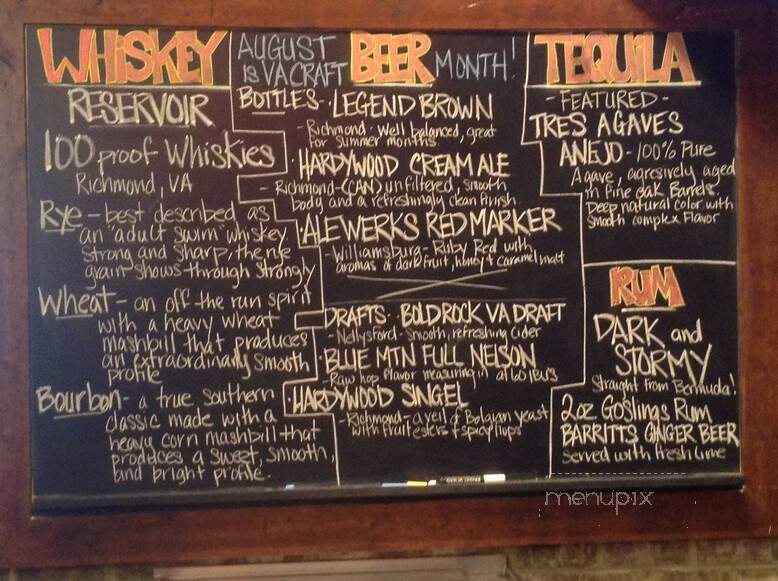 WHISKEY
RESERVOIR
100 proof Whiskies
Richmond, VA
Rye - best described as
an "adult swim" whiskey
strong and sharp, the rye
grain shows through strongly
Wheat - an off the run spirit
with a heavy wheat
mashbill that produces
an extraordinarily smooth
profile
Bourbon - a true southern
classic made with a
heavy corn mashbill that
produces a sweet, smooth,
and bright profile.
AUGUST BEER MONTH!
IS VA CRAFT
BOTTLES · LEGEND BROWN
- Richmond - Well balanced, great
for summer months
· HARDYWOOD CREAM ALE
- Richmond - (CAN) unfiltered, smooth
body and a refreshingly clean finish.
· ALEWERKS RED MARKER
- Williamsburg - Ruby Red with
aromas of dark fruit, honey & caramel malt
DRAFTS · BOLD ROCK VA DRAFT
- Nellysford - Smooth, refreshing cider
· BLUE MTN FULL NELSON
- Raw hop flavor measuring in at 60 IBUS
· HARDYWOOD SINGEL
- Richmond - a veil of Belgian yeast
with fruit esters & spicy hops
TEQUILA
- FEATURED -
TRES AGAVES
ANEJO - 100% Pure
Agave, agresively aged
in fine oak Barrels.
Deep natural color with
smooth complex flavor
RUM
DARK and
STORMY
Straight from Bermuda!
2oz Goslings Rum
BARRITTS GINGER BEER
served with fresh lime
menupix